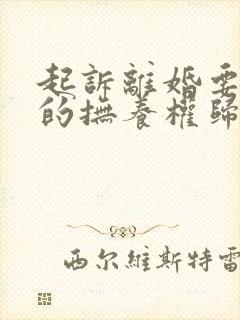 起訴離婚要
的撫養權歸
西尔維斯特雷